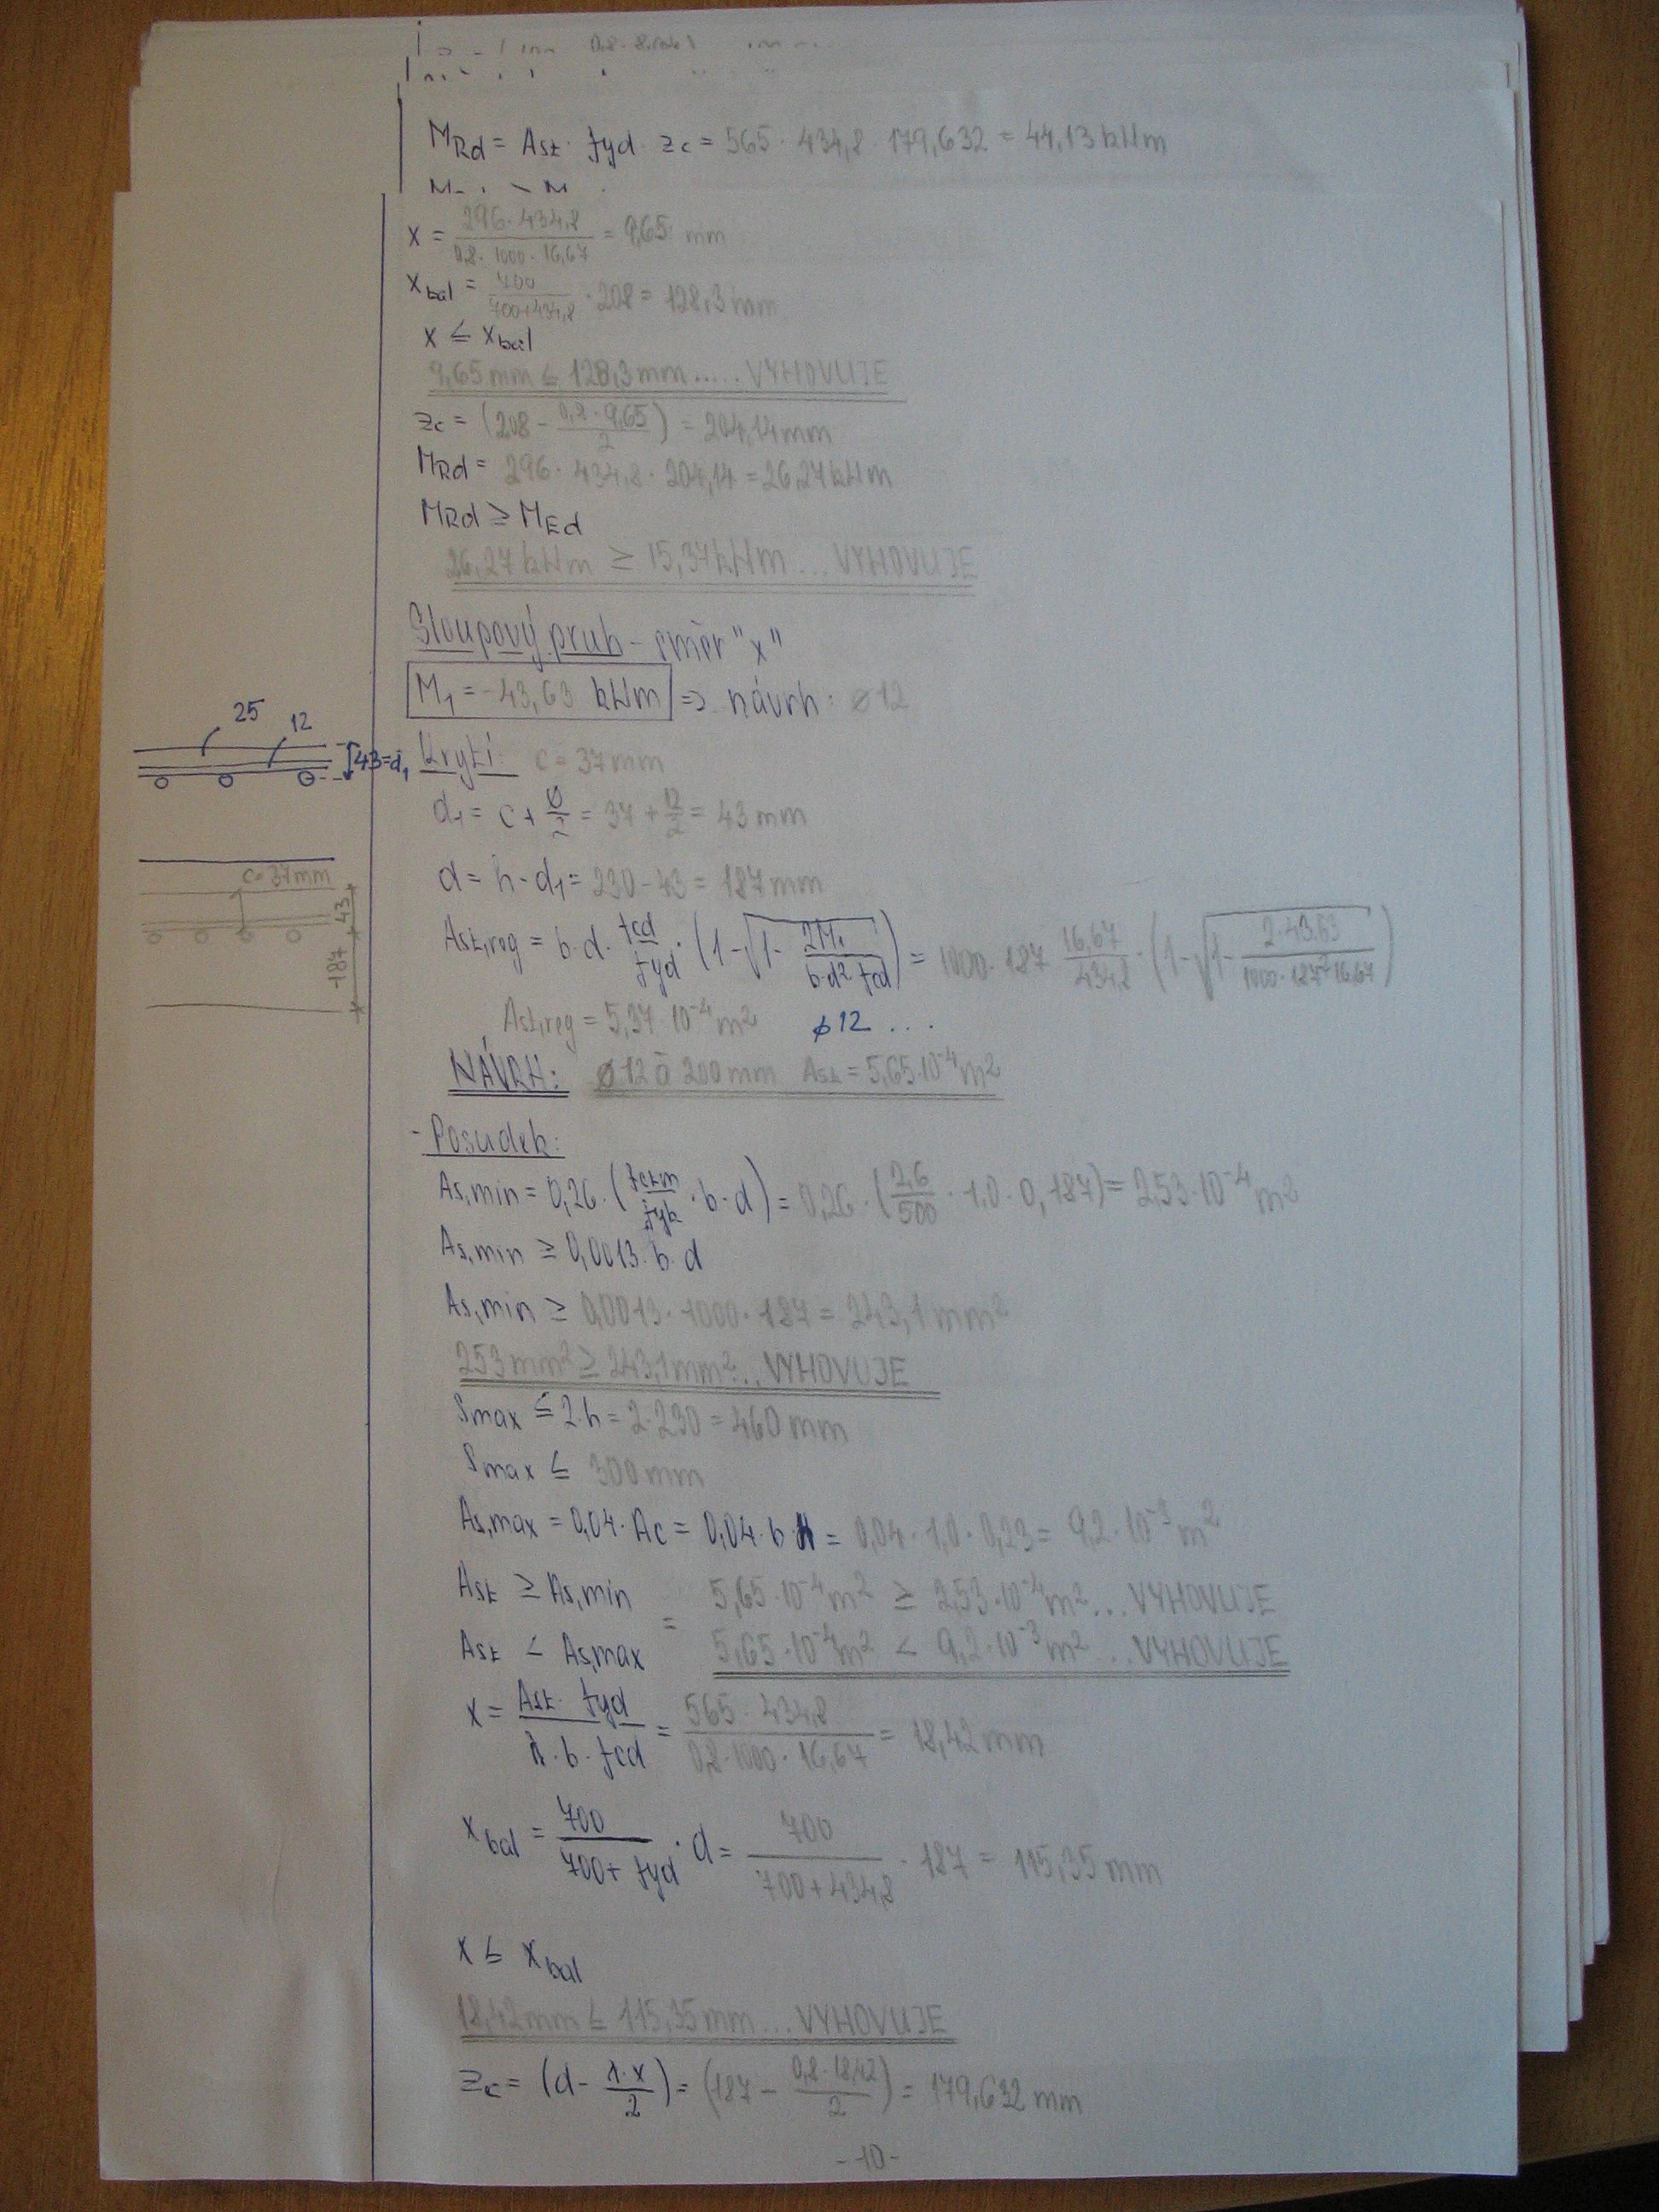 MRd = Ast · fyd · zc = 565 · 434,8 · 179,632 = 44,13 kNm
x = 296 · 434,8 / 0,8 · 1000 · 16,67 = 9,65 mm
xbal = 700 / 700+434,8 · 208 = 128,3 mm
x ≤ xbal
9,65 mm ≤ 128,3 mm ..... VYHOVUJE
zc = (208 - 0,8 · 9,65 / 2) = 204,14 mm
MRd = 296 · 434,8 · 204,14 = 26,27 kNm
MRd ≥ MEd
26,27 kNm ≥ 15,37 kNm ... VYHOVUJE
Sloupový pruh - směr "x"
M1 = -43,63 kNm => návrh: ø12
25
12
43=d1
Krytí: c = 37 mm
d1 = c + ø/2 = 37 + 12/2 = 43 mm
c=37mm
43
187
d = h - d1 = 230 - 43 = 187 mm
Ast,reg = b · d · fcd/fyd · (1-√(1- 2M1 / b·d²·fcd)) = 1000 · 187 · 16,67/434,8 · (1-√(1- 2·43,63 / 1000·187²·16,67))
Ast,reg = 5,37 · 10⁻⁴ m² ø12 ...
NÁVRH: ø12 á 200 mm Ast = 5,65·10⁻⁴ m²
- Posudek:
As,min = 0,26 · (fctm/fyk · b · d) = 0,26 · (2,6/500 · 1,0 · 0,187) = 2,53·10⁻⁴ m²
As,min ≥ 0,0013 · b · d
As,min ≥ 0,0013 · 1000 · 187 = 243,1 mm²
253 mm² ≥ 243,1 mm² ... VYHOVUJE
Smax ≤ 2·h = 2·230 = 460 mm
Smax ≤ 300 mm
As,max = 0,04 · Ac = 0,04 · b · h = 0,04 · 1,0 · 0,23 = 9,2 · 10⁻³ m²
Ast ≥ As,min = 5,65·10⁻⁴ m² ≥ 2,53·10⁻⁴ m² ... VYHOVUJE
Ast < As,max 5,65·10⁻⁴ m² < 9,2·10⁻³ m² ... VYHOVUJE
x = Ast · fyd / λ · b · fcd = 565 · 434,8 / 0,8 · 1000 · 16,67 = 18,42 mm
xbal = 700 / 700+fyd · d = 700 / 700+434,8 · 187 = 115,35 mm
x ≤ xbal
18,42 mm ≤ 115,35 mm ... VYHOVUJE
zc = (d - λ·x / 2) = (187 - 0,8·18,42 / 2) = 179,632 mm
- 10 -